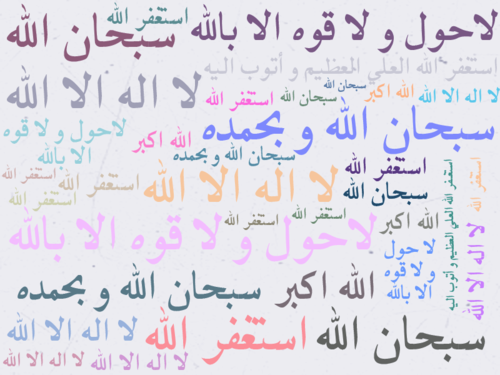 استغفر الله
لاحول و لا قوه الا بالله
سبحان الله
استغفر الله العلي العظيم و أتوب اليه
لا اله الا الله
سبحان الله
الله اكبر
لا اله الا الله
استغفر الله
سبحان الله
سبحان الله و بحمده
لاحول و لا قوه
الا بالله
الله اكبر
سبحان الله وبحمده
استغفر الله
استغفر الله
استغفر الله
لا اله الا الله
سبحان الله
استغفر الله
استغفر الله
استغفر الله العلي العظيم و أتوب اليه
استغفر الله
استغفر الله
الله اكبر
لاحول و لا قوه الا بالله
لا حول
و لا قوه
الا بالله
لا اله الا الله
سبحان الله و بحمده
الله اكبر
لا اله الا الله
استغفر الله
سبحان الله
لا اله الا الله
لا اله الا الله